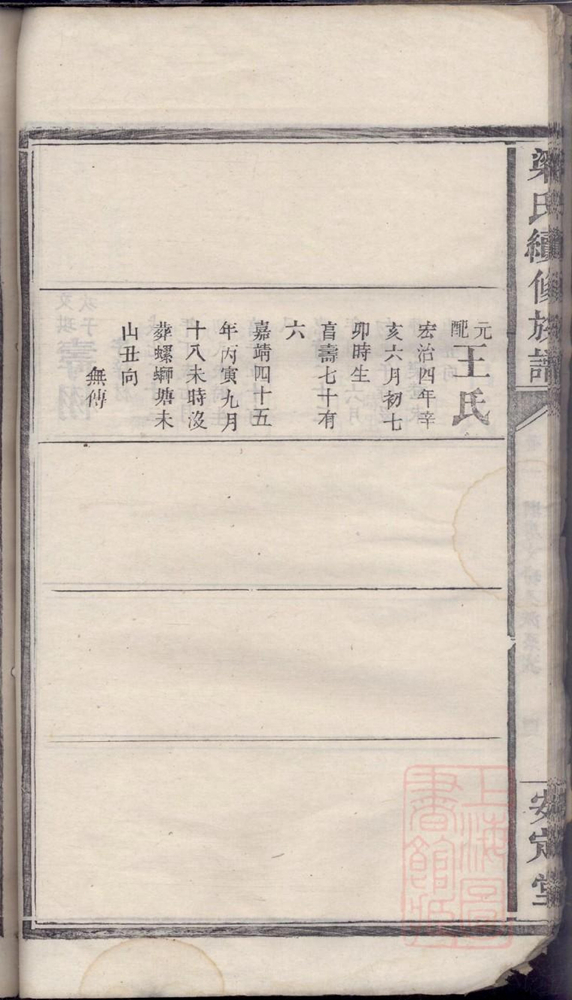 梁氏續修族譜
安定堂
元配王氏
宏治四年辛
亥六月初七
卯時生
亯壽七十有
六
嘉靖四十五
年丙寅九月
十八未時沒
葬螺螄塘未
山丑向
無傳
上海圖書館藏